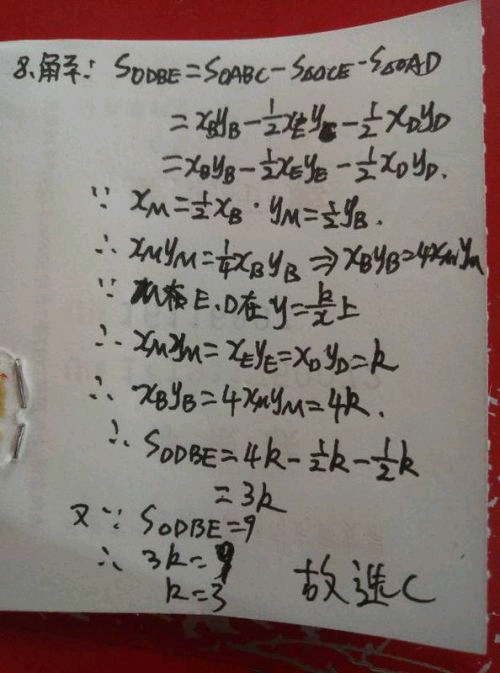 8.解: S_ODBE=S_OABC-S_△OCE-S_△OAD
=x_By_B-1/2x_Ey_E-1/2x_Dy_D
=x_By_B-1/2x_Ey_E-1/2x_Dy_D.
∵ x_M=1/2x_B · y_M=1/2y_B.
∴ x_My_M=1/4x_By_B⇒x_By_B=4x_My_M
∵ M、E、D在y=k/x上
∴ x_My_M=x_Ey_E=x_Dy_D=k
∴ x_By_B=4x_My_M=4k.
∴ S_ODBE=4k-1/2k-1/2k
=3k
又∵ S_ODBE=9
∴ 3k=9
k=3 故选C